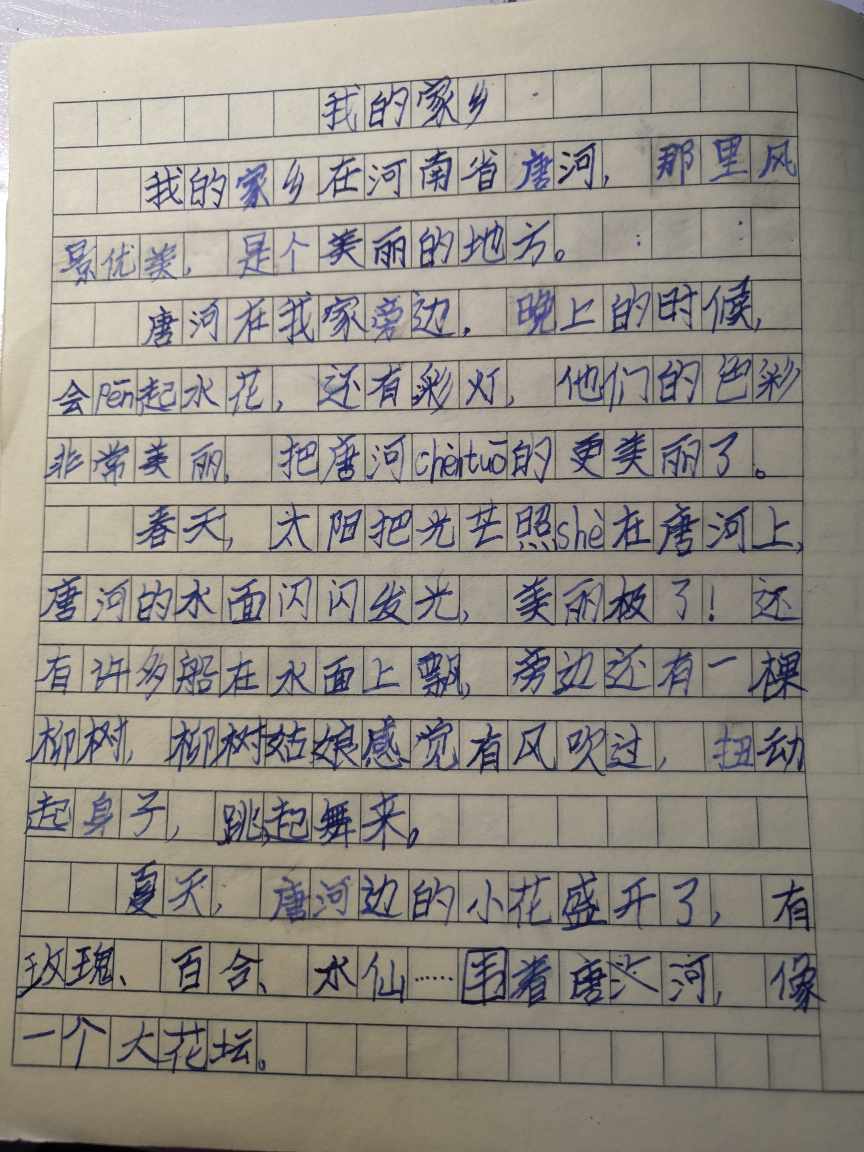 我的家乡
我的家乡在河南省唐河，那里风
景优美，是个美丽的地方。
唐河在我家旁边，晚上的时候，
会pēn起水花，还有彩灯，他们的色彩
非常美丽，把唐河chèntuō的更美丽了。
春天，太阳把光芒照shè在唐河上，
唐河的水面闪闪发光，美丽极了！还
有许多船在水面上飘，旁边还有一棵
柳树，柳树姑娘感觉有风吹过，扭动
起身子，跳起舞来。
夏天，唐河边的小花盛开了，有
玫瑰、百合、水仙……围着唐河，像
一个大花坛。